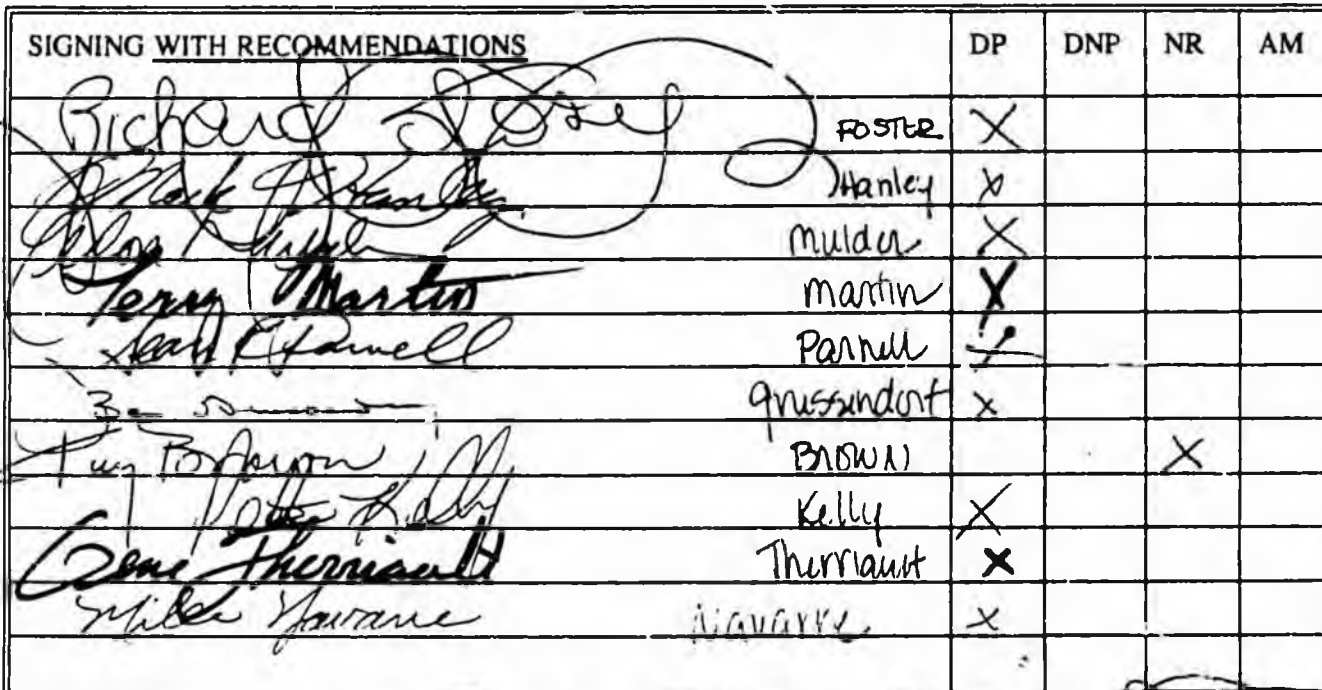 SIGNING WITH RECOMMENDATIONS DP DNP NR AM
Richard Foster FOSTER X
Mark Hanley Hanley X
Mulder X
Terry Martin Martin X
Sean R Parnell Parnell X
Ben Grussendorf X
Brown Brown X
Pete Kelly Kelly X
Gene Therriault Therriault X
Mike Navarre Navarre X